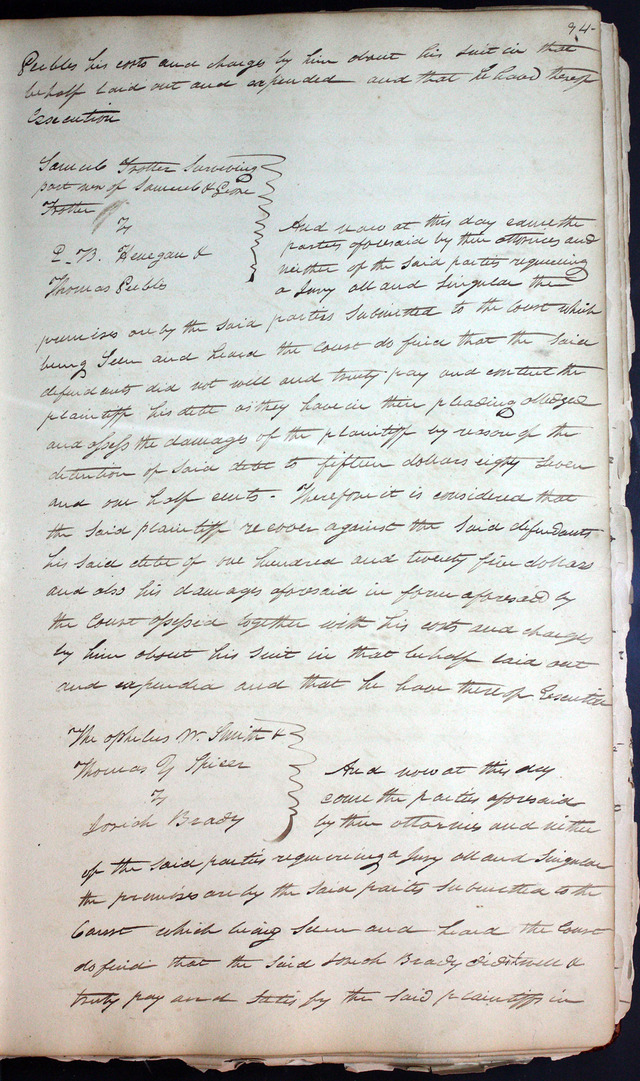 94-
Peebles his costs and charges by him about his suit in that
behalf laid out and expended and that he have thereof
Execution
Samuel Trotter Surviving
partner of Samuel & George
Trotter
vs
P. B. Henegan &
Thomas Peebles
And now at this day came the
parties aforesaid by their attornies and
neither of the said parties requireing
a Jury all and Singular the
premises are by the said parties submitted to the Court which
being Seen and heard the Court do find that the said
defendants did not well and truly pay and content the
plaintiff his debt as they have in their pleading alledged
and assess the damages of the plaintiff by reason of the
detention of said debt to fifteen dollars eighty seven
and one half cents - Therefore it is considered that
the said plaintiff recover against the said defendants
his said debt of one hundred and twenty five dollars
and also his damages aforesaid in form aforesaid by
the Court assessed together with his costs and charges
by him about his suit in that behalf laid out
and expended and that he have thereof Execution
Theophelus W. Smith &
Thomas Y Spicer
vs
Josiah Brady
And now at this day
come the parties aforesaid
by their attornies and neither
of the said parties requireing a Jury all and Singular
the premises are by the said parties submitted to the
Court which being Seen and heard the Court
do find that the said Josiah Brady did well &
truly pay and satisfy the said plaintiffs in